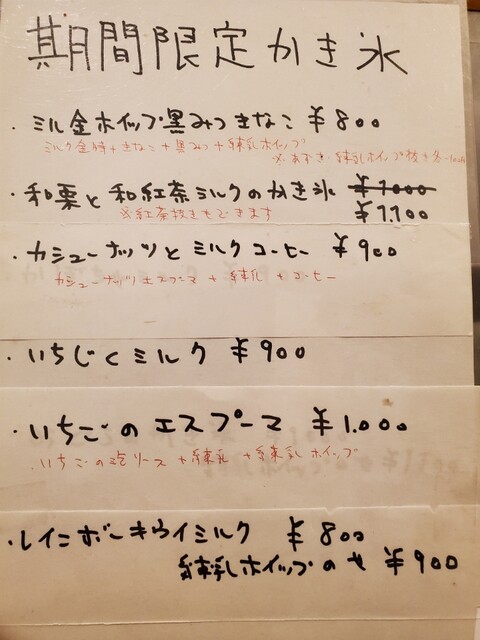 期間限定かき氷
・ミル金ホイップ黒みつきなこ ¥800
ミルク金時+きなこ+黒みつ+練乳ホイップ
※あずき・練乳ホイップ抜き
・和栗と和紅茶ミルクのかき氷 ¥1000
※紅茶抜きもできます ¥1,100
・カシューナッツとミルクコーヒー ¥900
カシューナッツエスプーマ + 練乳 + コーヒー
・いちじくミルク ¥900
・いちごのエスプーマ ¥1.000
・いちごの泡ソース + 練乳 + 練乳ホイップ
・レインボーキウイミルク ¥800
練乳ホイップのせ ¥900